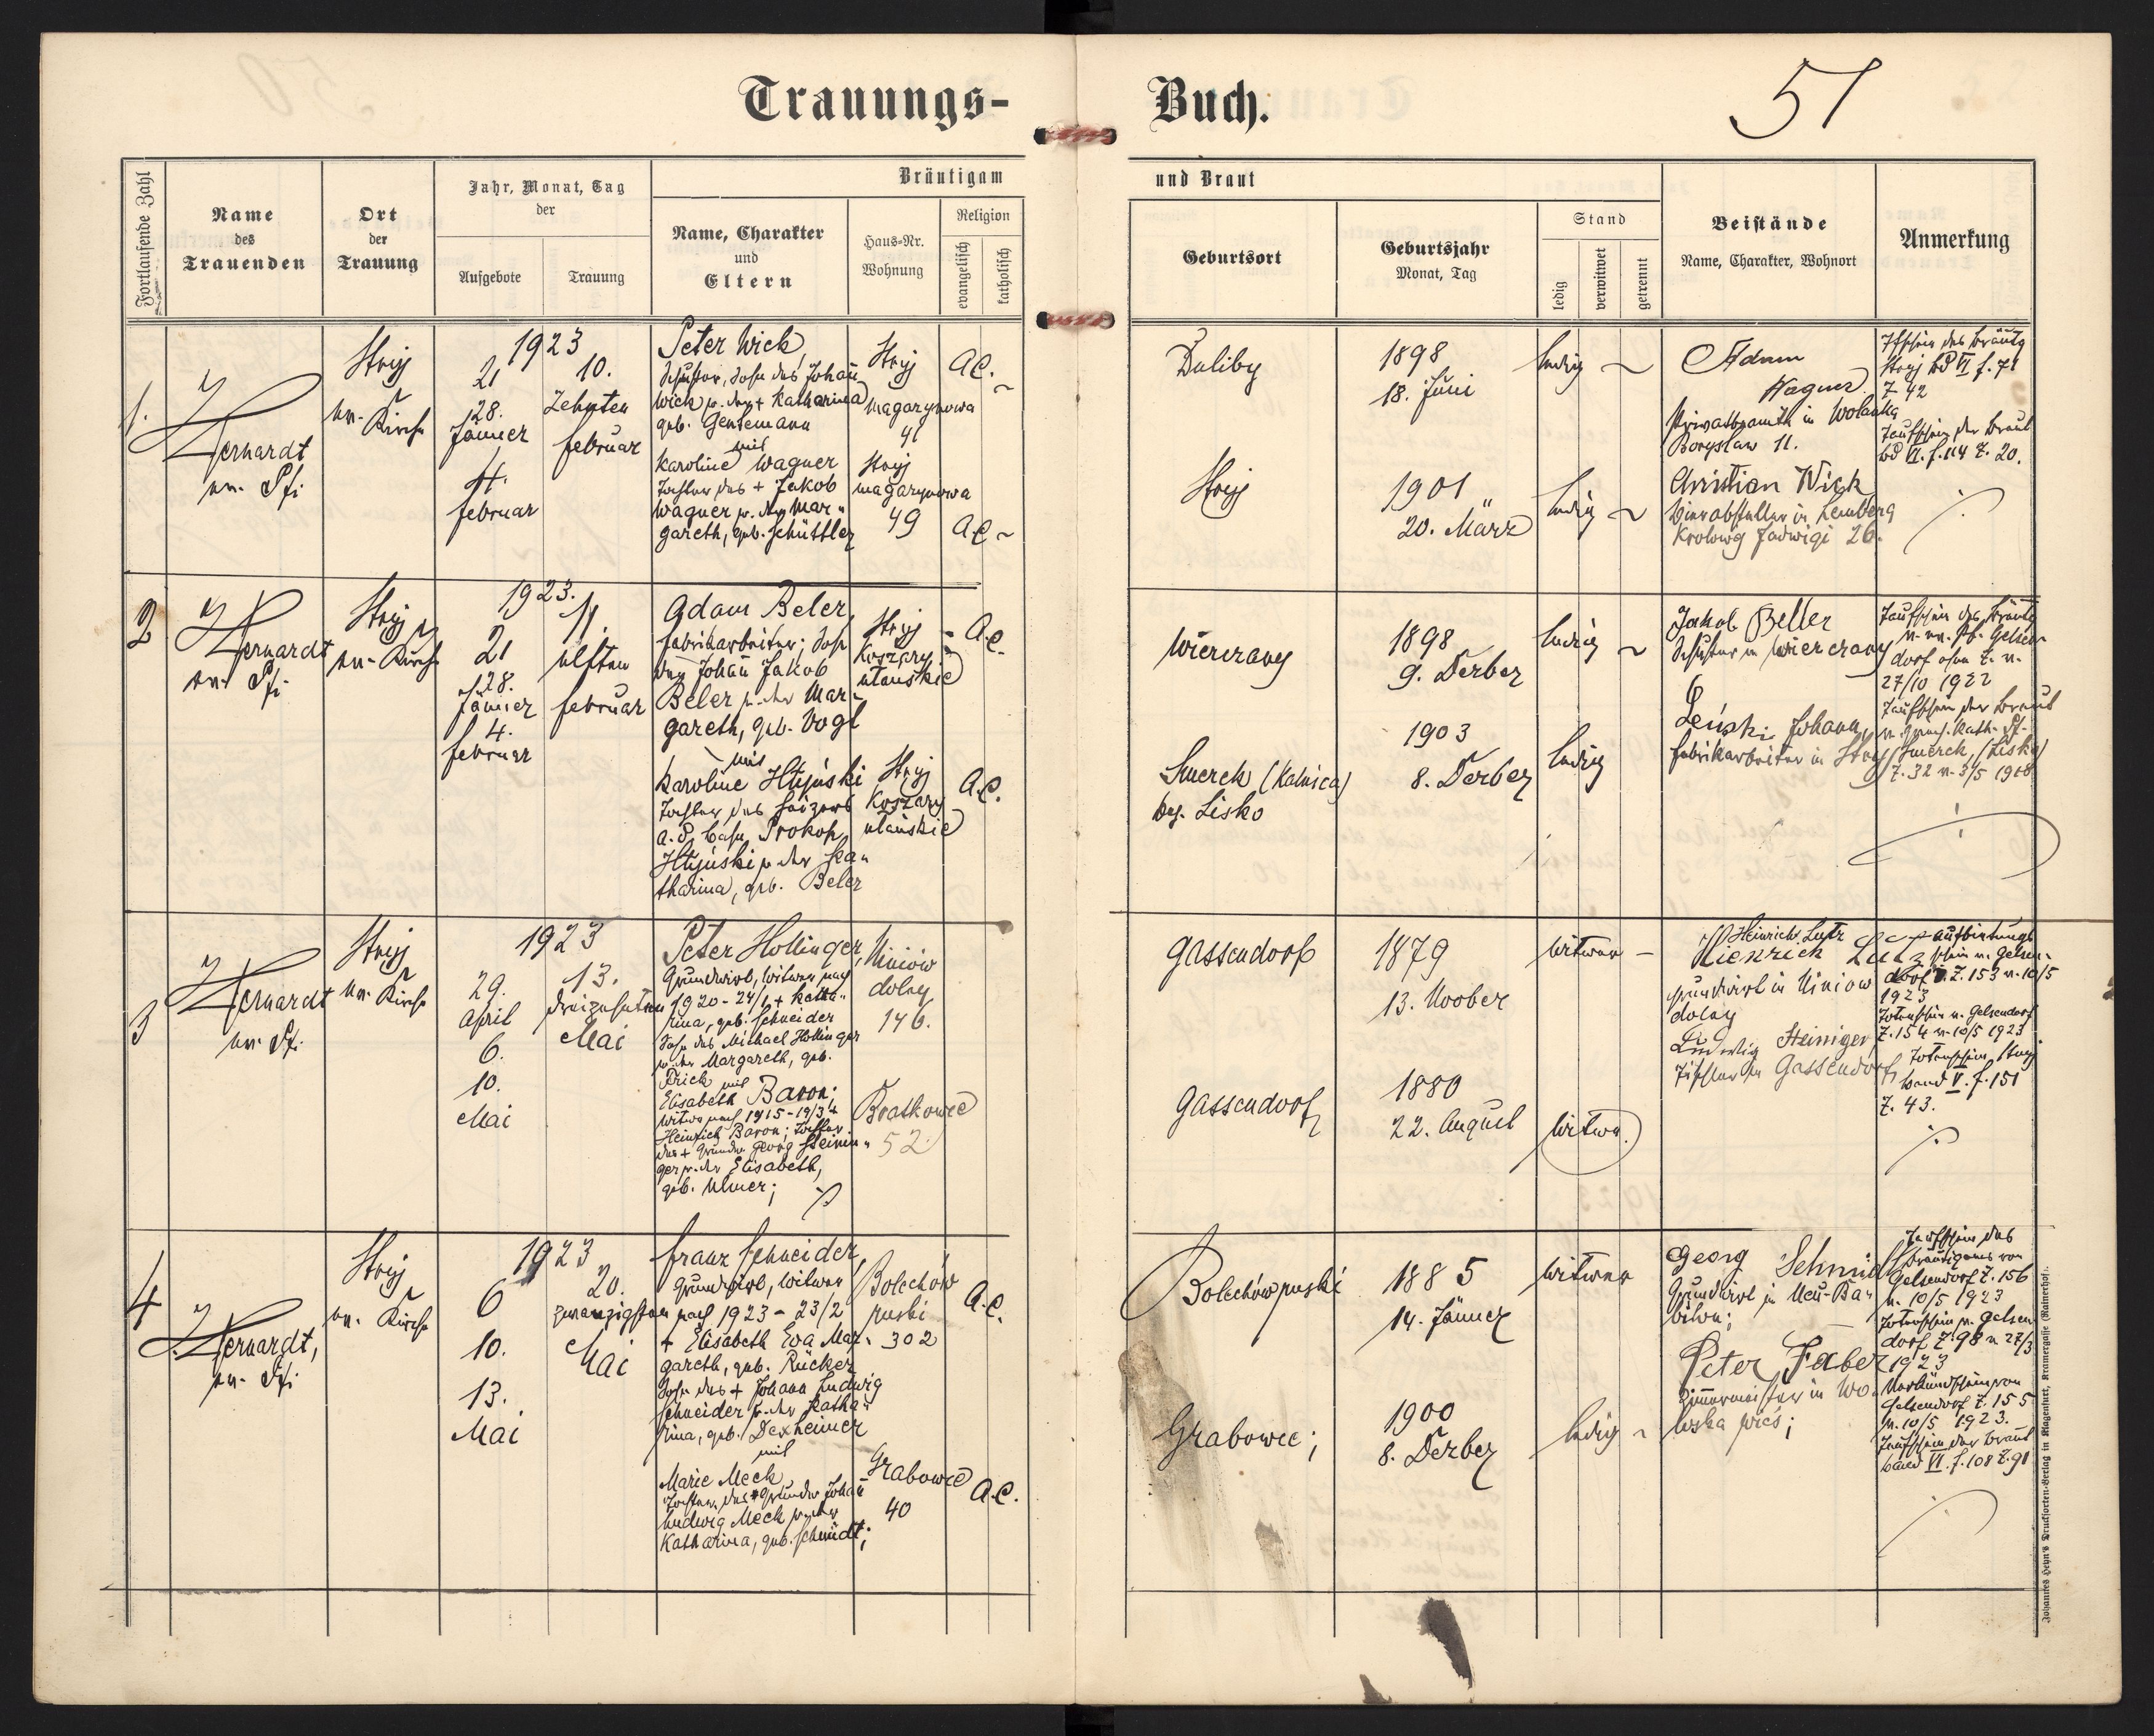 Trauungs-
Buch.
51
Fortlaufende Zahl
Name
des
Trauenden
Ort
der
Trauung
Jahr, Monat, Tag
der
Aufgebote
Trauung
Bräutigam
Name, Charakter
und
Eltern
Haus-Nr.
Wohnung
Religion
evangelisch
katholisch
und Braut
Geburtsort
Geburtsjahr
Monat, Tag
Stand
ledig
verwitwet
getrennt
Beistände
Name, Charakter, Wohnort
Anmerkung
1.
ev. Pf.
Stryj
ev. Kirche
1923
21
28.
Jänner
4.
februar
10.
Zehnten
februar
Peter Wick,
Schuster, Sohn des Johann
Wick u. der + Katharina
geb. Gensemann
mit
Karoline Wagner
Tochter des + Jakob
Wagner u. der Mar-
gareth, geb. Schüttler
Stryj
magazynowa
41
Stryj
magazynowa
49
A.C.
A.C.
Duliby
Stryj
1898
18. Juni
1901
20. März
ledig
ledig
Adam
Wagner
Privatbeamte in Wolanka
Boryslaw 11.
Christian Wick
in Lemberg
Jadwigi 26.
Tfschein des Bräutg
Stryj bd VI f. 71
Z 42
Taufschein der Braut
bd VI. f. 114 Z. 20.
2
ev. Pf.
Stryj
ev. Kirche
1923.
21
28.
Jänner
4.
februar
11.
elften
februar
Adam Beler,
fabrikarbeiter; Sohn
des Johann Jakob
Beler u. der Mar-
gareth, geb. Vogl
mit
Karoline
Tochter des Heizers
a. d. Bahn, Prokop
u. der Ka-
tharina, geb. Beler
Stryj
Koszary
ułańskie
Stryj
Koszary
ułańskie
A.C.
A.C.
Wierczany
Smerek (Kalnica)
bez. Lisko
1898
9. Dezber
1903
8. Dezber
ledig
ledig
Jakob Beller
Schuster in Wierczany
Johann,
fabrikarbeiter in Stryj
Taufschein des Bräutg
v. ev. Pf. Gelsen-
dorf ohne Z. v.
27/10 1922
Taufschein der Braut
v. griech. kath. Pf.
Smerek, (Lisko)
Z. 32 v. 3/5 1918
3
ev. Pf.
Stryj
ev. Kirche
1923
29.
April
6.
10.
Mai
13.
dreizehnten
Mai
Peter Hollinger,
Grundwirt, Witwer nach
1920 - 24/1, + Katha-
rina, geb. Schneider
Sohn des Michael Hollinger
u. der Margareth, geb.
Frick mit
Elisabeth Baron;
Witwe nach 1915 - 19/3 +
Heinrich Baron; Tochter
des + Grundw. Georg Steinin-
ger u. der Elisabeth,
geb. Ulmer;
Uniów
dolny
146.
Bratkowce
52.
Gassendorf
Gassendorf
1879
13. Novber
1880
22. August
Witwer
Witwe.
Heinrich Lutz
Hienrich Lutz
Grundwirt in Uniow
dolny
Ludwig Steiniger
Tischler in Gassendorf
Aufbietungs
schein v. Gelsen-
dorf Z. 153 v. 10/5
1923
Totenschein v. Gelsendorf
Z. 154 v. 10/5 1923
Totenschein Stryj
band V. f. 151
Z. 43.
4
ev. Pf.
Stryj
ev. Kirche
1923
6
10.
13.
Mai
20.
zwanzigsten
Mai
franz Schneider,
Grundwirt, Witwer
nach 1923 - 23/2
+ Elisabeth Eva Mar-
gareth, geb. Rücker
Sohn des + Johann Ludwig
Schneider u. der Katha-
rina, geb. Dexheimer
mit
Marie Meck
Tochter des + Grundw Johann
Ludwig Meck u. der
Katharina, geb. Schmidt;
Bolechów
ruski
302
Grabowce
40
A.C.
A.C.
Bolechów ruski
Grabowce;
1885
14. Jänner
1900
8. Dezber
Witwer
ledig
Georg Schmidt
Grundwirt in Neu-Ba-
bilon;
Peter Faber
Zimmermeister in Wo-
loska wieś;
Taufschein des
Bräutigams von
Gelsendorf Z. 156
v. 10/5 1923
Totenschein v. Gelsen
dorf Z 98 v. 27/3
1923
Verkündschein von
Gelsendorf Z. 155
v. 10/5 1923.
Taufschein der Braut
band VI. f. 108 Z. 91
Johannes Heyn's Drucksorten-Verlag in Klagenfurt, Kramergasse (Rainerhof).